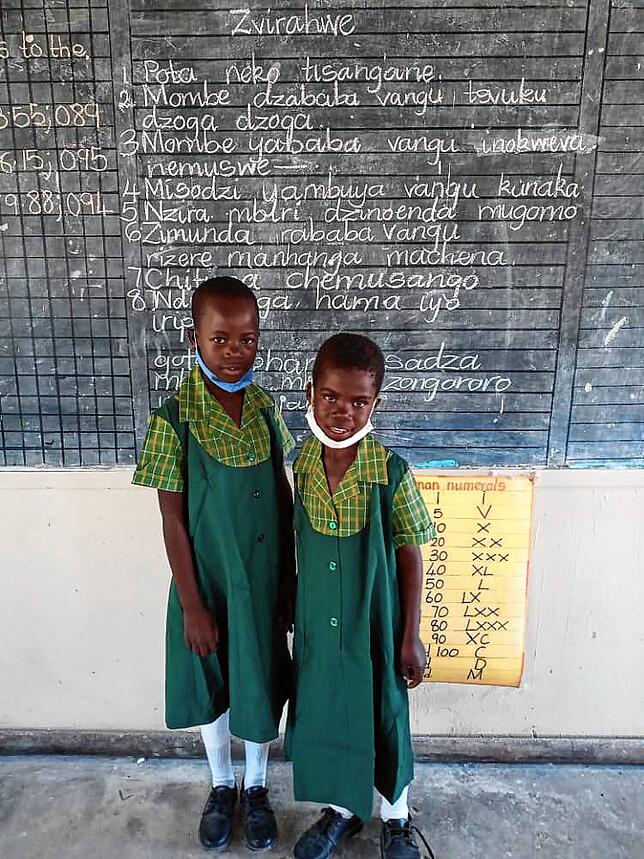 s to the.
355,089
6.15; 095
9.88; 094
Zvirahwe
1 Pota neko tisangane.
2 Mombe dzababa vangu tsvuku
dzoga dzoga.
3 Mombe yababa vangu inokweva
nemuswe
4 Misodzi yambuya vangu kunaka
5 Nzira mbiri dzinoenda mugomo
6 Zimunda rababa vangu
rizere manhanga machena.
7 chemusango
8 hama iyo
sadza
zongororo
man numerals
1 I
5 V
10 X
20 XX
30 XXX
40 XL
50 L
60 LX
70 LXX
80 LXXX
90 XC
100 C
D
M